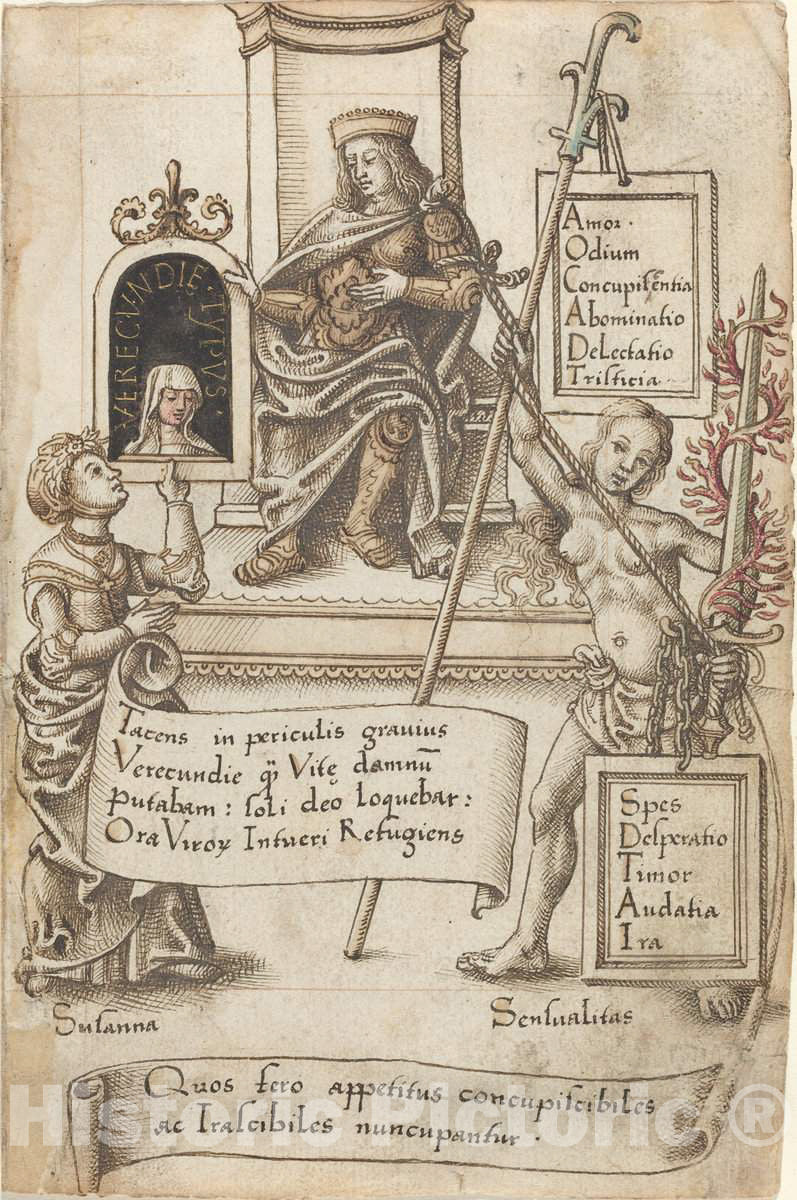 VERECVNDIE·TYPVS·
Amor·
Odium
Concupiscentia
Abominatio
Delectatio
Tristicia·
Tacens in periculis gravius
Verecundie qͥ Vitę damnū
Putabam: soli deo loquebar:
Ora Viroꝝ Intueri Refugiens
Spes
Desperatio
Timor
Audatia
Ira
Susanna
Sensualitas
Quos fero appetitus concupiscibiles
ac Irascibiles nuncupantur·
Historic Pictoric ®